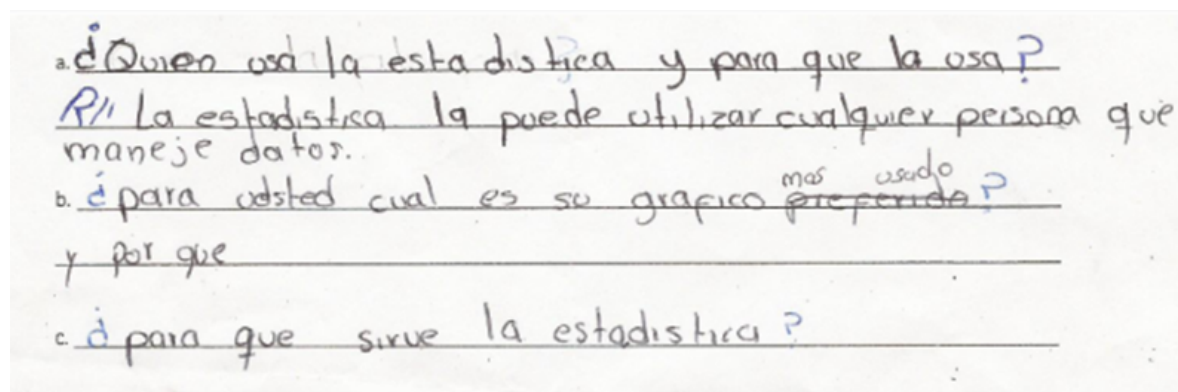 a. ¿Quien usa la estadistica y para que la usa?
R// La estadistica la puede utilizar cualquier persona que
maneje datos.
mas usado
b. ¿para udsted cual es su grafico preferido?
y por que
c. ¿para que sirve la estadistica?